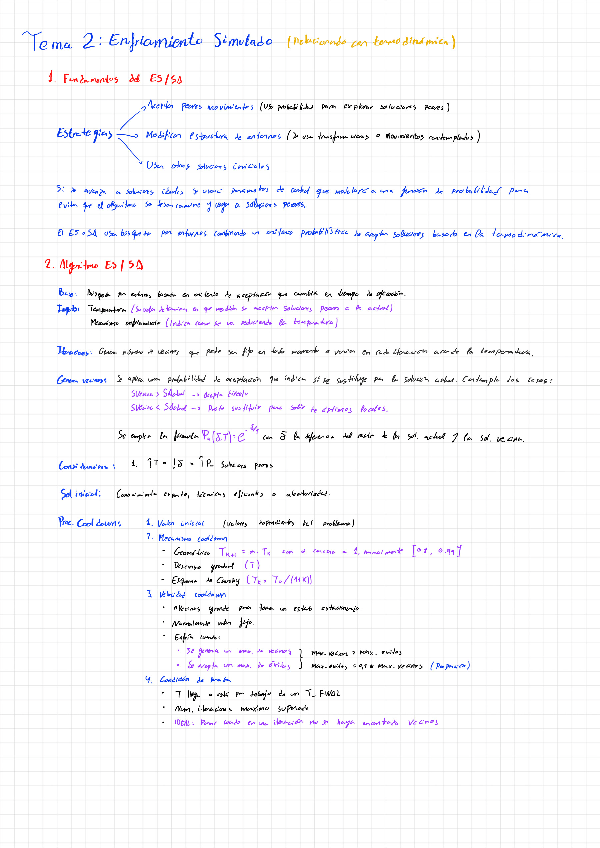 Tema 2: Enfriamiento Simulado (Relacionado con termodinámica)
1. Fundamentos del ES/SA
Aceptar peores movimientos (Usa probabilidad para explorar soluciones peores)
Estrategias → Modificar estructura de entornos (Se usa transformaciones o movimientos contemplados)
Usar otras soluciones iniciales
Si se avanza a soluciones ideales se usará parámetros de control que modelará a una función de probabilidad para
evitar que el algoritmo se desencamine y caiga a soluciones peores.
El ES o SA usa búsqueda por entornos combinando un criterio probabilístico de aceptar soluciones basado en la termodinámica.
2. Algoritmo ES/SA
Base: Búsqueda por entornos basada en criterio de aceptación que cambia en tiempo de ejecución.
Inputs: Temperatura (Se usa determina en que medida se aceptan soluciones peores a la actual)
Mecanismo enfriamiento (Indica como se va reduciendo la temperatura)
Iteraciones: Genera número de vecinos que puede ser fijo en todo momento o variar en cada iteración acorde la temperatura.
Genera vecinos: Se aplica una probabilidad de aceptación que indica si se sustituye por la solución actual. Contempla dos casos:
SVecina > SActual → Acepta directo
SVecina < SActual → Puede sustituir para salir de óptimos locales.
Se emplea la fórmula Pa(δ,T) = e^-δ/T con δ la diferencia del coste de la sol. actual y la sol. vecina.
Consideraciones: 1. ↑T = ↓δ = ↑Pa Soluciones peores
Sol inicial: Conocimiento experto, técnicas eficientes o aleatoriedad.
Proc. Cooldown: 1. Valor inicial (valores dependientes del problema)
2. Mecanismo cooldown
- Geométrico Tk+1 = α·Tk con α cercano a 1, normalmente [0.8, 0.99]
- Descenso gradual (T)
- Esquema de Cauchy (Tk = T0/(1+k))
3. Velocidad cooldown
- Nvecinos grande para tener un estado estacionario
- Normalmente valor fijo.
- Enfría cuando:
• Se genera un max. de vecinos
• Se acepta un max. de éxitos
max_vecinos > max_exitos
max_exitos = 0,1 * max_vecinos (Proporción)
4. Condición de parada
- T llega o está por debajo de un T_FINAL
- Núm. iteraciones máximo superado
- IDEAL: Parar cuando en una iteración no se haya encontrado vecinos